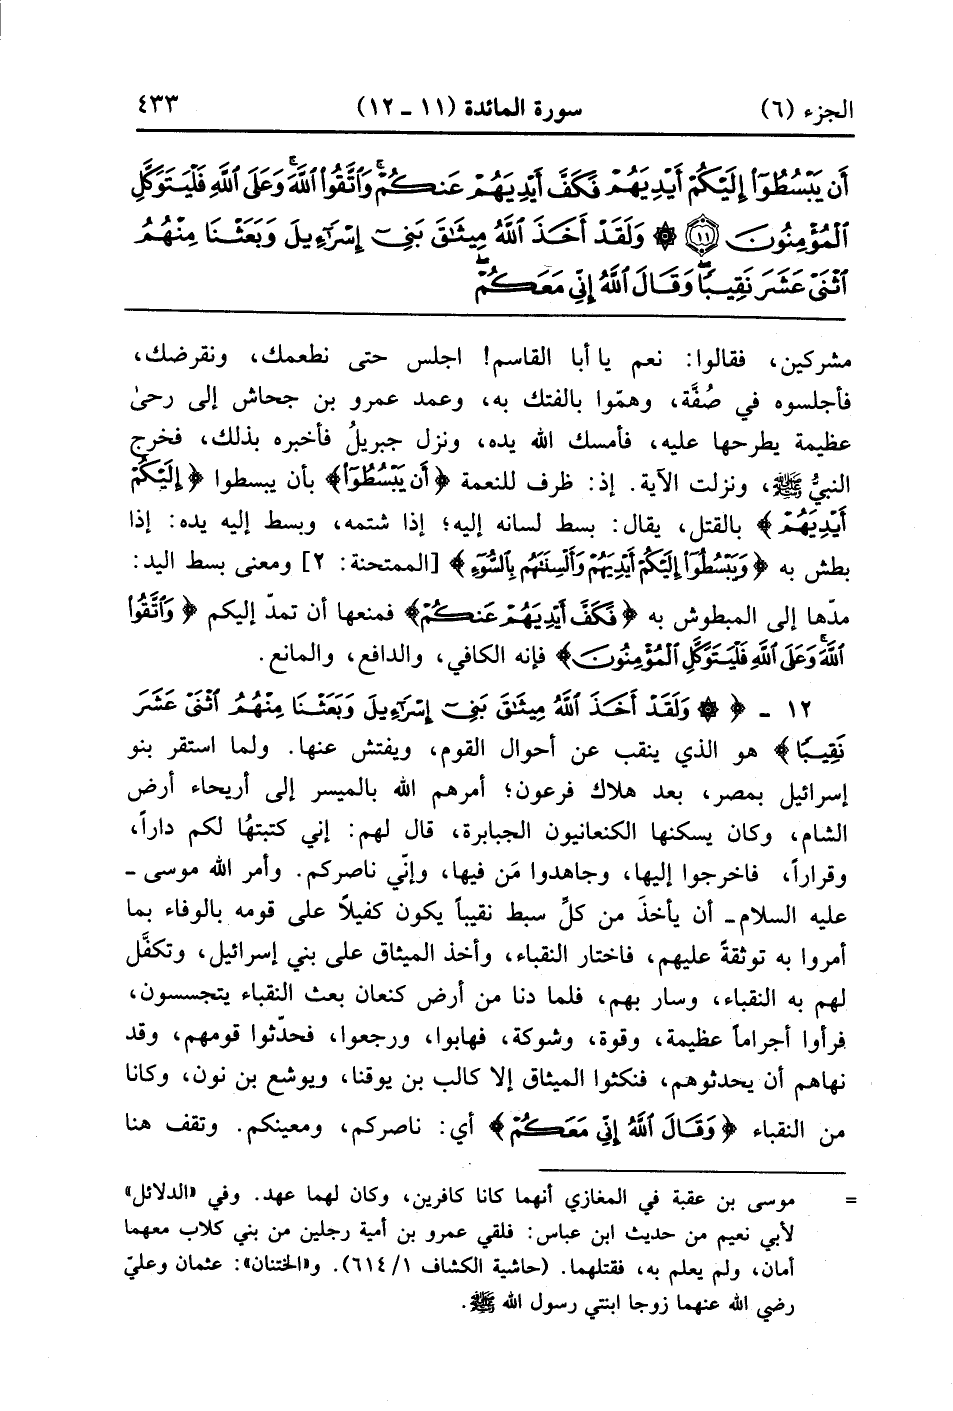 الجزء (٦) سورة المائدة (١١ ـ ١٢) ٤٣٣
أَن يَبْسُطُوٓا۟ إِلَيْكُمْ أَيْدِيَهُمْ فَكَفَّ أَيْدِيَهُمْ عَنكُمْ ۖ وَٱتَّقُوا۟ ٱللَّهَ ۚ وَعَلَى ٱللَّهِ فَلْيَتَوَكَّلِ
ٱلْمُؤْمِنُونَ ۝١١ ۞ وَلَقَدْ أَخَذَ ٱللَّهُ مِيثَٰقَ بَنِىٓ إِسْرَٰٓءِيلَ وَبَعَثْنَا مِنْهُمُ
ٱثْنَىْ عَشَرَ نَقِيبًا ۖ وَقَالَ ٱللَّهُ إِنِّى مَعَكُمْ ۖ
مشركين، فقالوا: نعم يا أبا القاسم! اجلس حتى نطعمك، ونقرضك،
فأجلسوه في صُفَّة، وهمّوا بالفتك به، وعمد عمرو بن جحاش إلى رحىً
عظيمة يطرحها عليه، فأمسك الله يده، ونزل جبريلُ فأخبره بذلك، فخرج
النبيُّ ﷺ، ونزلت الآية. إذ: ظرف للنعمة ﴿أَن يَبْسُطُوٓا۟﴾ بأن يبسطوا ﴿إِلَيْكُمْ
أَيْدِيَهُمْ﴾ بالقتل، يقال: بسط لسانه إليه؛ إذا شتمه، وبسط إليه يده: إذا
بطش به ﴿وَيَبْسُطُوٓا۟ إِلَيْكُمْ أَيْدِيَهُمْ وَأَلْسِنَتَهُم بِٱلسُّوٓءِ﴾ [الممتحنة: ٢] ومعنى بسط اليد:
مدّها إلى المبطوش به ﴿فَكَفَّ أَيْدِيَهُمْ عَنكُمْ﴾ فمنعها أن تمدّ إليكم ﴿وَٱتَّقُوا۟
ٱللَّهَ ۚ وَعَلَى ٱللَّهِ فَلْيَتَوَكَّلِ ٱلْمُؤْمِنُونَ﴾ فإنه الكافي، والدافع، والمانع.
١٢ ـ ﴿ ۞ وَلَقَدْ أَخَذَ ٱللَّهُ مِيثَٰقَ بَنِىٓ إِسْرَٰٓءِيلَ وَبَعَثْنَا مِنْهُمُ ٱثْنَىْ عَشَرَ
نَقِيبًا﴾ هو الذي ينقب عن أحوال القوم، ويفتش عنها. ولما استقر بنو
إسرائيل بمصر، بعد هلاك فرعون؛ أمرهم الله بالميسر إلى أريحاء أرض
الشام، وكان يسكنها الكنعانيون الجبابرة، قال لهم: إني كتبتهُا لكم داراً،
وقراراً، فاخرجوا إليها، وجاهدوا مَن فيها، وإنّي ناصركم. وأمر الله موسى ـ
عليه السلام ـ أن يأخذَ من كلِّ سبط نقيباً يكون كفيلاً على قومه بالوفاء بما
أمروا به توثقةً عليهم، فاختار النقباء، وأخذ الميثاق على بني إسرائيل، وتكفَّل
لهم به النقباء، وسار بهم، فلما دنا من أرض كنعان بعث النقباء يتجسسون،
فرأوا أجراماً عظيمة، وقوة، وشوكة، فهابوا، ورجعوا، فحدّثوا قومهم، وقد
نهاهم أن يحدثوهم، فنكثوا الميثاق إلا كالب بن يوقنا، ويوشع بن نون، وكانا
من النقباء ﴿وَقَالَ ٱللَّهُ إِنِّى مَعَكُمْ﴾ أي: ناصركم، ومعينكم. وتقف هنا
= موسى بن عقبة في المغازي أنهما كانا كافرين، وكان لهما عهد. وفي «الدلائل»
لأبي نعيم من حديث ابن عباس: فلقي عمرو بن أمية رجلين من بني كلاب معهما
أمان، ولم يعلم به، فقتلهما. (حاشية الكشاف ٦١٤/١). و«الختنان»: عثمان وعليّ
رضي الله عنهما زوجا ابنتي رسول الله ﷺ.